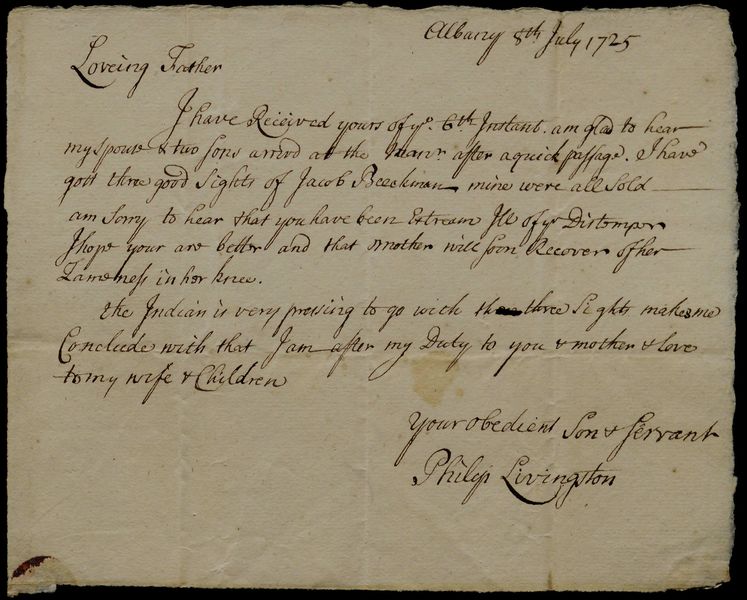 Albany 8th July 1725
Loveing Father
I have Received yours of ye. 6th Instant. am glad to hear
my spouse & two sons arrivd at the Manr. after a quick passage. I have
gott three good Sights of Jacob Beeckman mine were all Sold
am Sorry to hear that you have been Extream Ill of yr Distemper
I hope your are better and that mother will soon Recover of her
Lameness in her knee.
the Indian is very pressing to go with three Sights makes me
Conclude with that I am after my Duty to you & mother & love
to my wife & Children
Your obedient Son & Servant
Philip Livingston